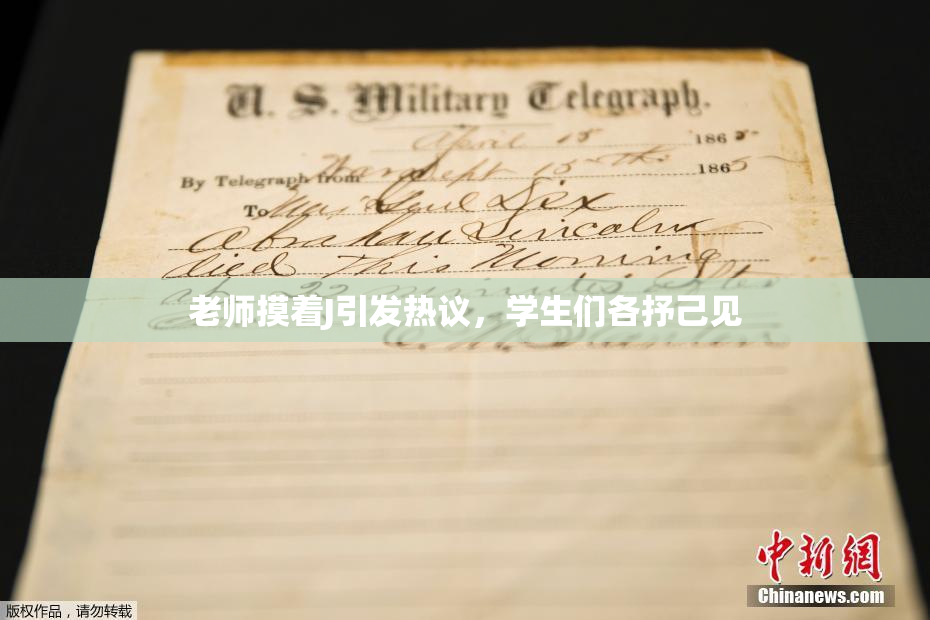 U. S. Military Telegraph.
April 15 1865-
By Telegraph from War Dept 15th 1865
To Maj Genl Dix
Abraham Lincoln
died This Morning
at 22 minutes after
老师摸着J引发热议，学生们各抒己见
E. M. Stanton
中新网
Chinanews.com
版权作品，请勿转载